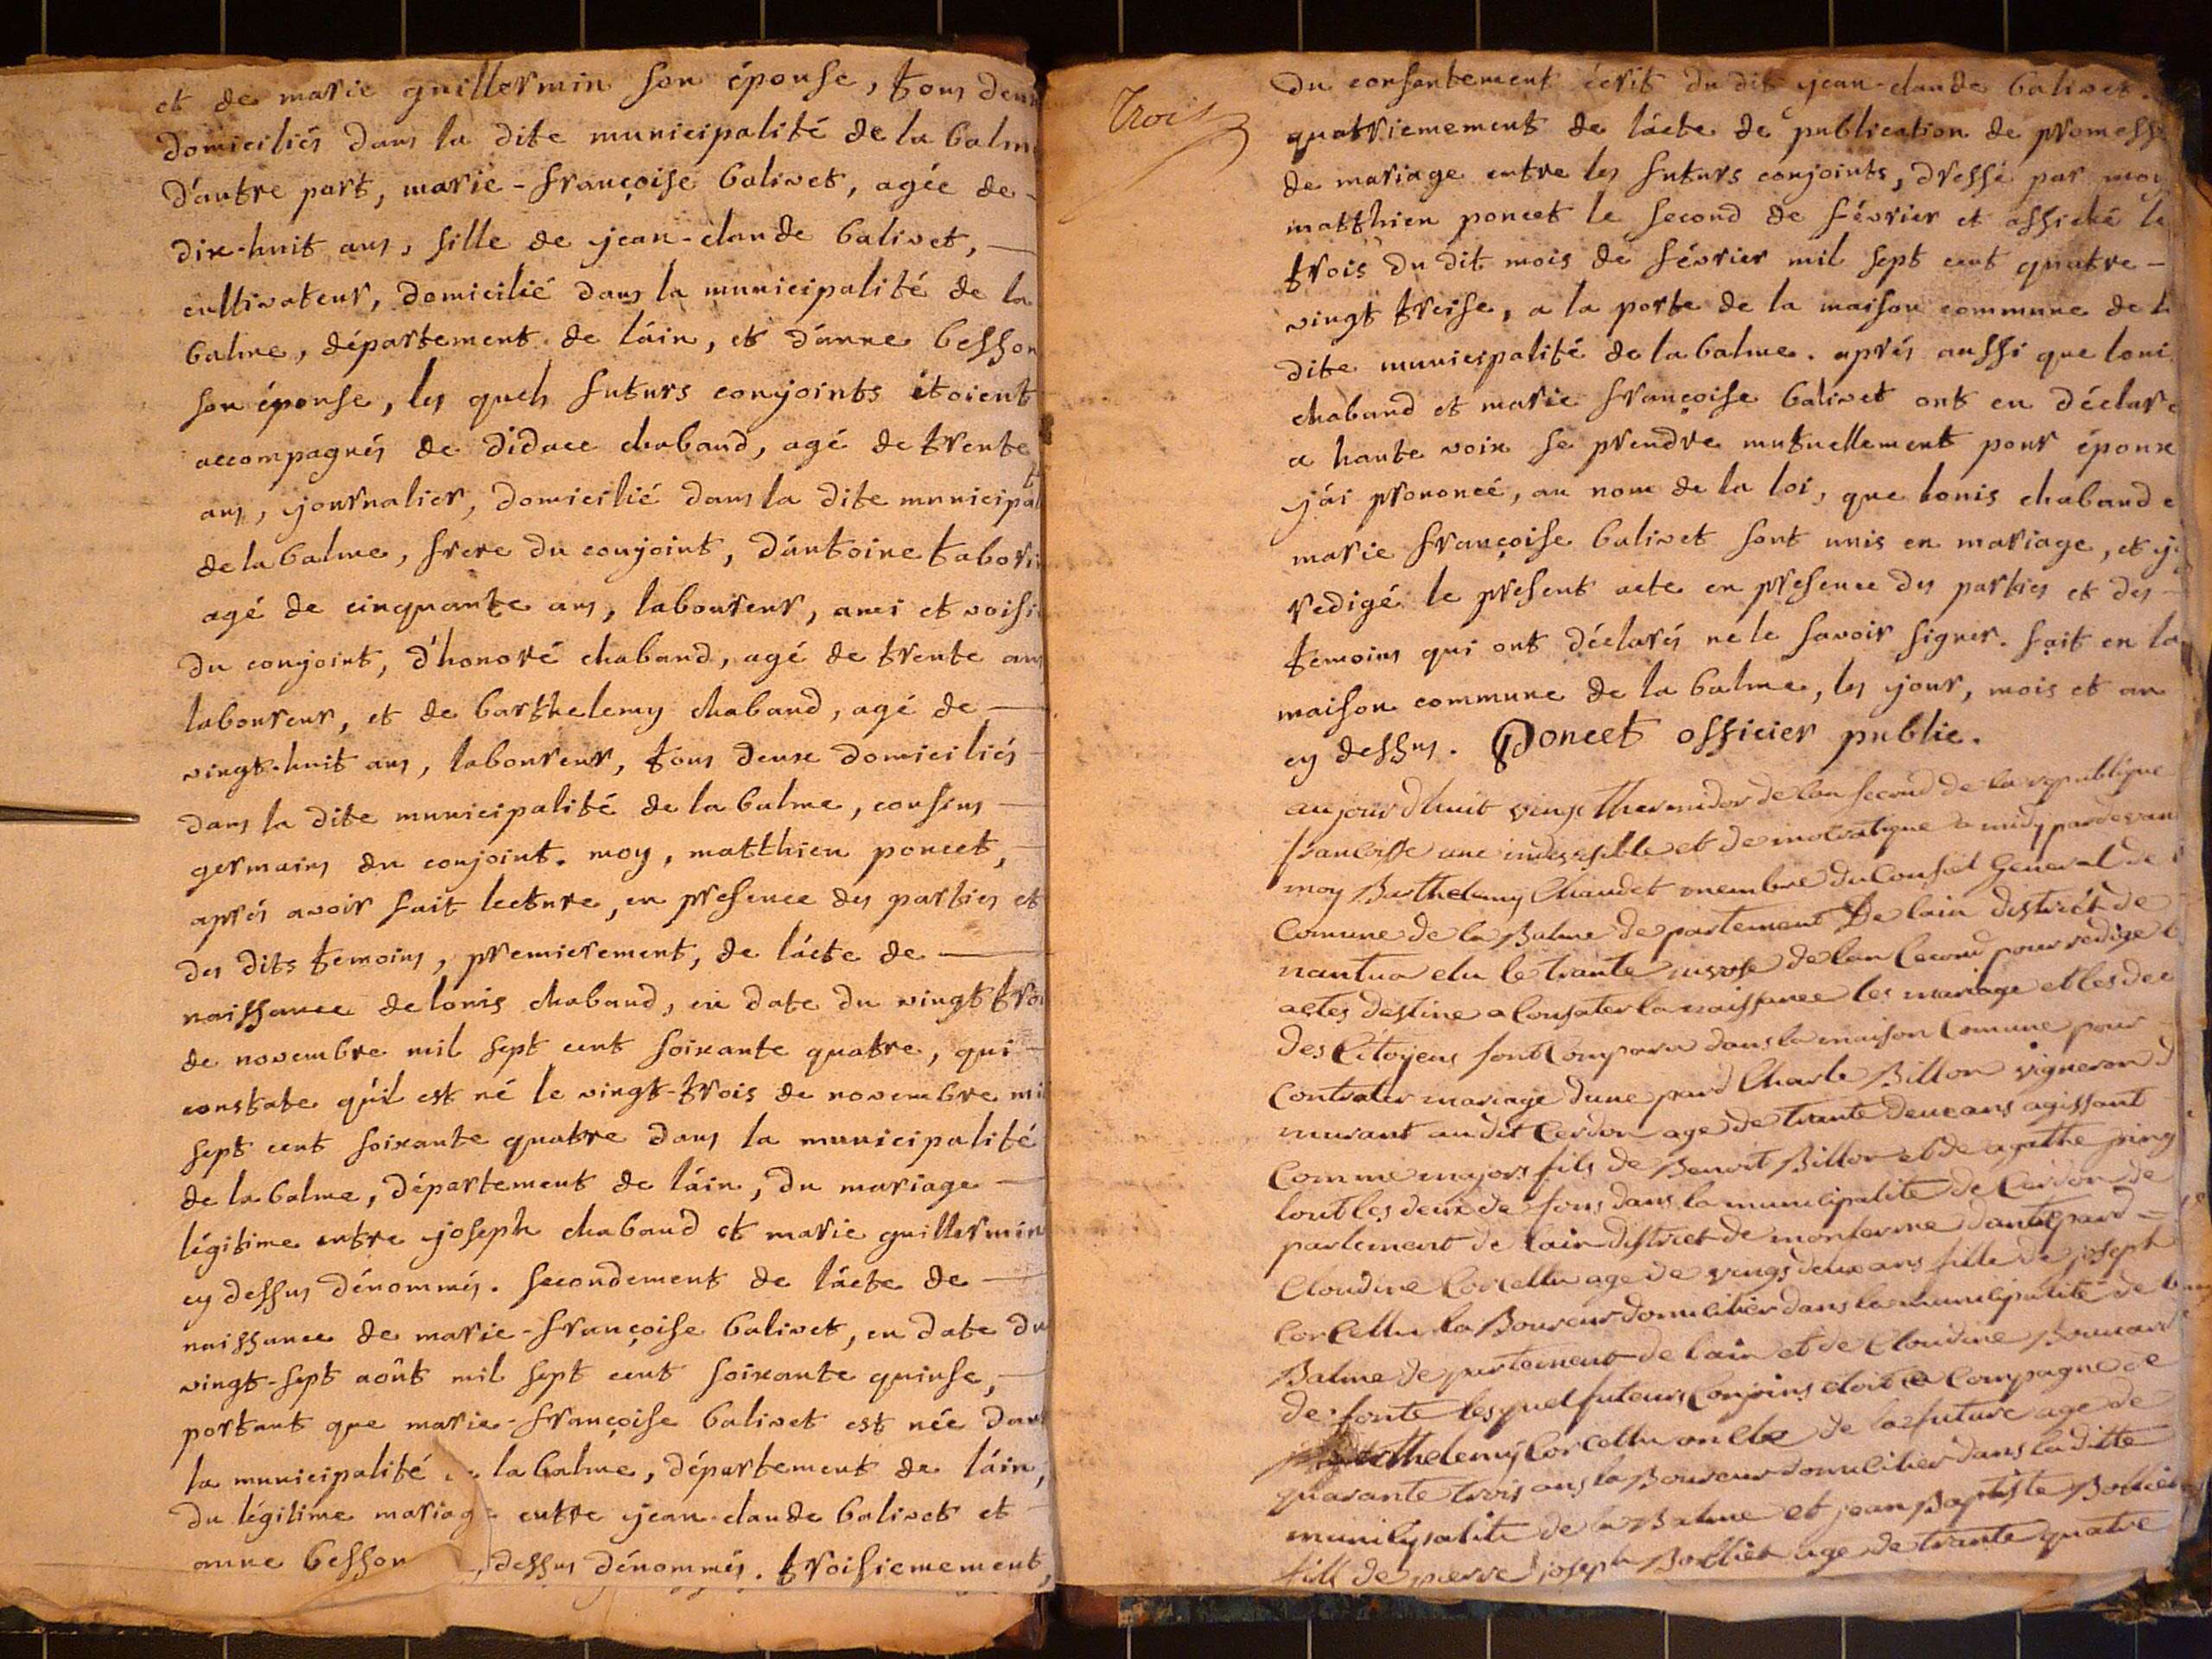 et de marie guillermin son épouse, tous deux
domiciliés dans la dite municipalité de la balme
d'autre part, marie-françoise balivet, agée de
dix-huit ans, fille de jean-claude balivet,
cultivateur, domicilié dans la municipalité de la
balme, département de l'ain, et d'anne besson
son épouse, les quels futurs conjoints étoient
accompagnés de didace chaband, agé de trente
ans, journalier, domicilié dans la dite municipalt
de la balme, frere du conjoint, d'antoine tabori
agé de cinquante ans, laboureur, ami et voisi
du conjoint, d'honoré chaband, agé de trente ans
laboureur, et de barthelemy chaband, agé de
vingt-huit ans, laboureur, tous deux domiciliés
dans la dite municipalité de la balme, cousins
germains du conjoint. moy, matthieu poncet,
aprés avoir fait lecture, en presence des parties et
des dits temoins, premierement, de l'acte de
naissance de louis chaband, en date du vingt troi
de novembre mil sept cent soixante quatre, qui
constate qu'il est né le vingt-trois de novembre mil
sept cent soixante quatre dans la municipalité
de la balme, département de l'ain, du mariage
légitime entre joseph chaband et marie guillermin
cy dessus dénommés. secondement de l'acte de
naissance de marie-françoise balivet, en date du
vingt-sept août mil sept cent soixante quinse,
portant que marie-françoise balivet est née dans
la municipalité la balme, département de l'ain,
du légitime mariag entre jean-claude balivet et
anne besson dessus dénommés. troisiemement,
Trois
du consentement écrit du dit jean-claude balivet.
quatriemement de l'acte de publication de promesse
de mariage entre les futurs conjoints, dressé par moy
matthieu poncet le second de février et affiché le
trois du dit mois de février mil sept cent quatre-
vingt treise, a la porte de la maison commune de la
dite municipalité de la balme. aprés aussi que loui
chaband et marie françoise balivet ont eu déclaré
a haute voix se prendre mutuellement pour époux
j'ai prononcé, au nom de la loi, que louis chaband e
marie françoise balivet sont unis en mariage, et j'
redigé le present acte en presence des parties et des
temoins qui ont déclarés ne le savoir signer. fait en la
maison commune de la balme, les jour, mois et an
cy dessus. Poncet officier public.
aujourdhuit vingt thermidor de lan second de la republique
francoisse une indivisible et democratique a midy pardevan
moy Barthelemy Chaudet membre du Conseil General de l
Comune de la Balme departement De lain district de
nantua elu le trante nivose de lan Cecond pour redige l
actes destine a Consater la naissance les mariage et les dec
des Citoyens sont Comparu dans la maison Comune pour
Contrater mariage dune pard Charle Billon vigneron d
murant audit Cerdon age de trante deux ans agissant
Comme majors fils de Benoit Billon et de agathe ping
tout les deux de fons dans la municipalite de Cerdon de
partement de lain district de monferme dautre pard =
Cloudine Corcellu age de vings deux ans fille de joseph
Corcellu la Boureur domicilier dans la municipalite de la
Balme departement de lain et de Cloudine Bouvard
de fonte lesquel futeurs Conjoins etoit a Compagne de
Barthelemy Corcellu oncle de la future age de
quarante trois ans la Boureur domicilier dans la ditte
municipalite de la Balme et jean Baptiste Bollier
fils de pierre joseph Bollier age de trante quatre